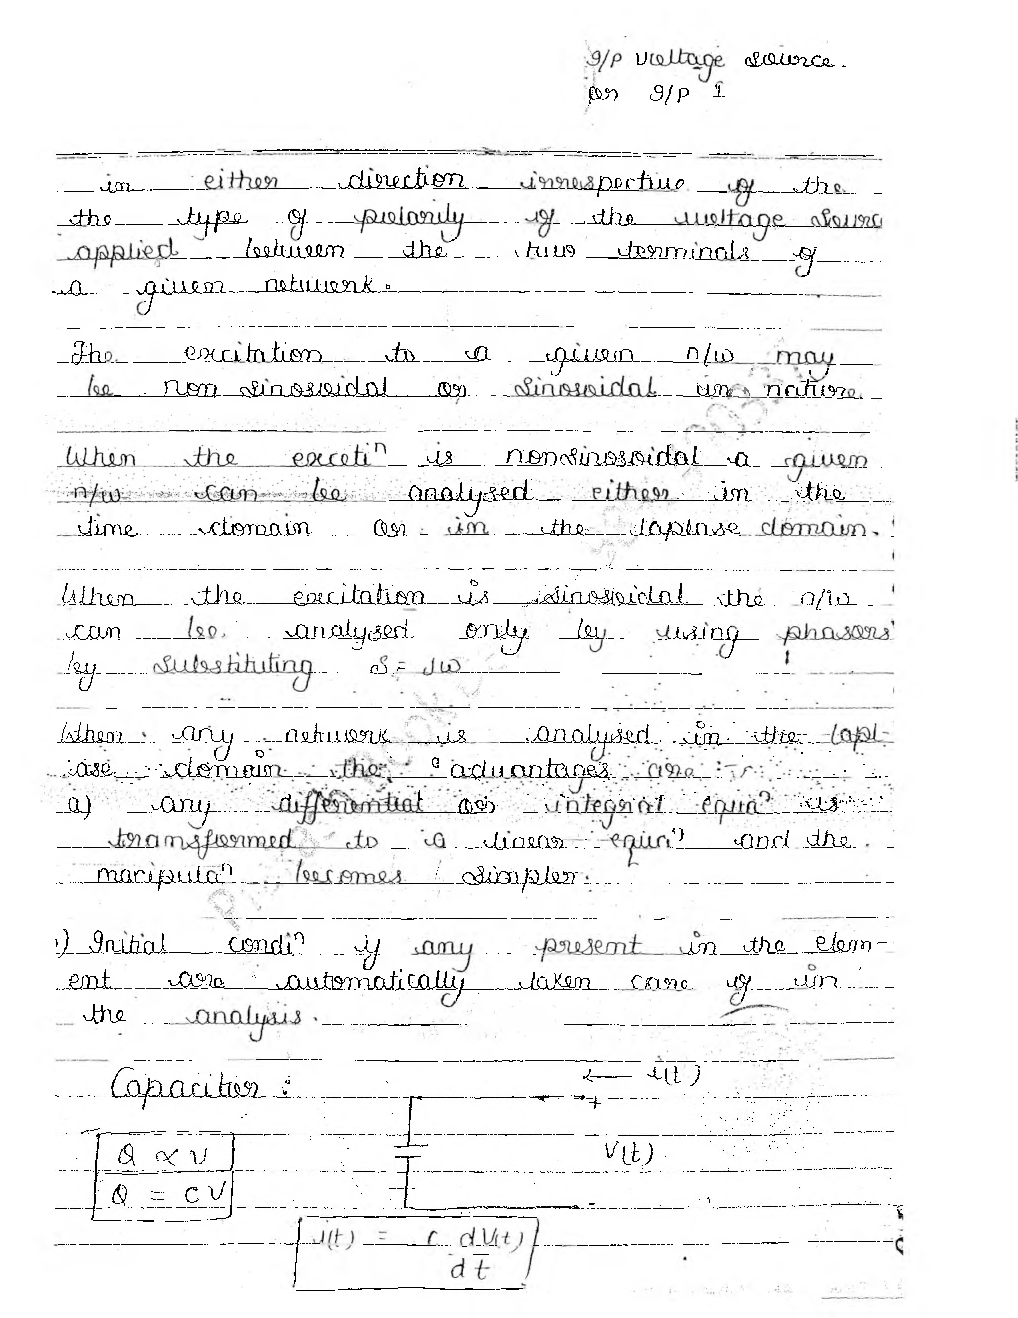 I/P voltage source.
or I/P I
in either direction irrespective of the
the type of polarity of the voltage sourc
applied between the two terminals of
a given network.
The excitation to a given n/w may
be non sinosoidal or sinosoidal in nature.
When the exceti^n is nonsinosoidal a given
n/w can be analysed either in the
time domain or in the laplase domain.
When the excitation is sinosoidal the n/w
can be analysed only by using phasors
by substituting S = Jw
When any network is analysed in the lapl-
ase domain the advantages are :
a) any differential or integral equa^n is
transformed to a linear equa^n and the
manipula^n becomes simpler.
) Initial condi^n if any present in the elem-
ent are automatically taken care of in
the analysis.
Capacitor :
← i(t)
+
Q ∝ V
V(t)
Q = CV
-
i(t) = C dV(t)
dt